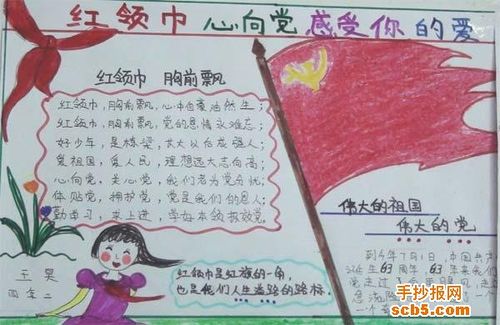 红领巾 心向党 感受你的爱
红领巾 胸前飘
红领巾，胸前飘，心中自豪油然生；
红领巾，胸前飘，党的恩情永难忘；
好少年，是栋梁，
爱祖国，爱人民，理想远大志向高；
心向党，关心党，我们
体贴党，拥护党，党是我们的恩人；
勤学习，求上进，学好本领报效党。
红领巾是红旗的一角，
也是我们人生道路的路标。
伟大的祖国
伟大的党
到今年7月1日，中国共产
诞生63周年，63年来我们
党走过
王昊
四年二
手抄报网
scb5.com